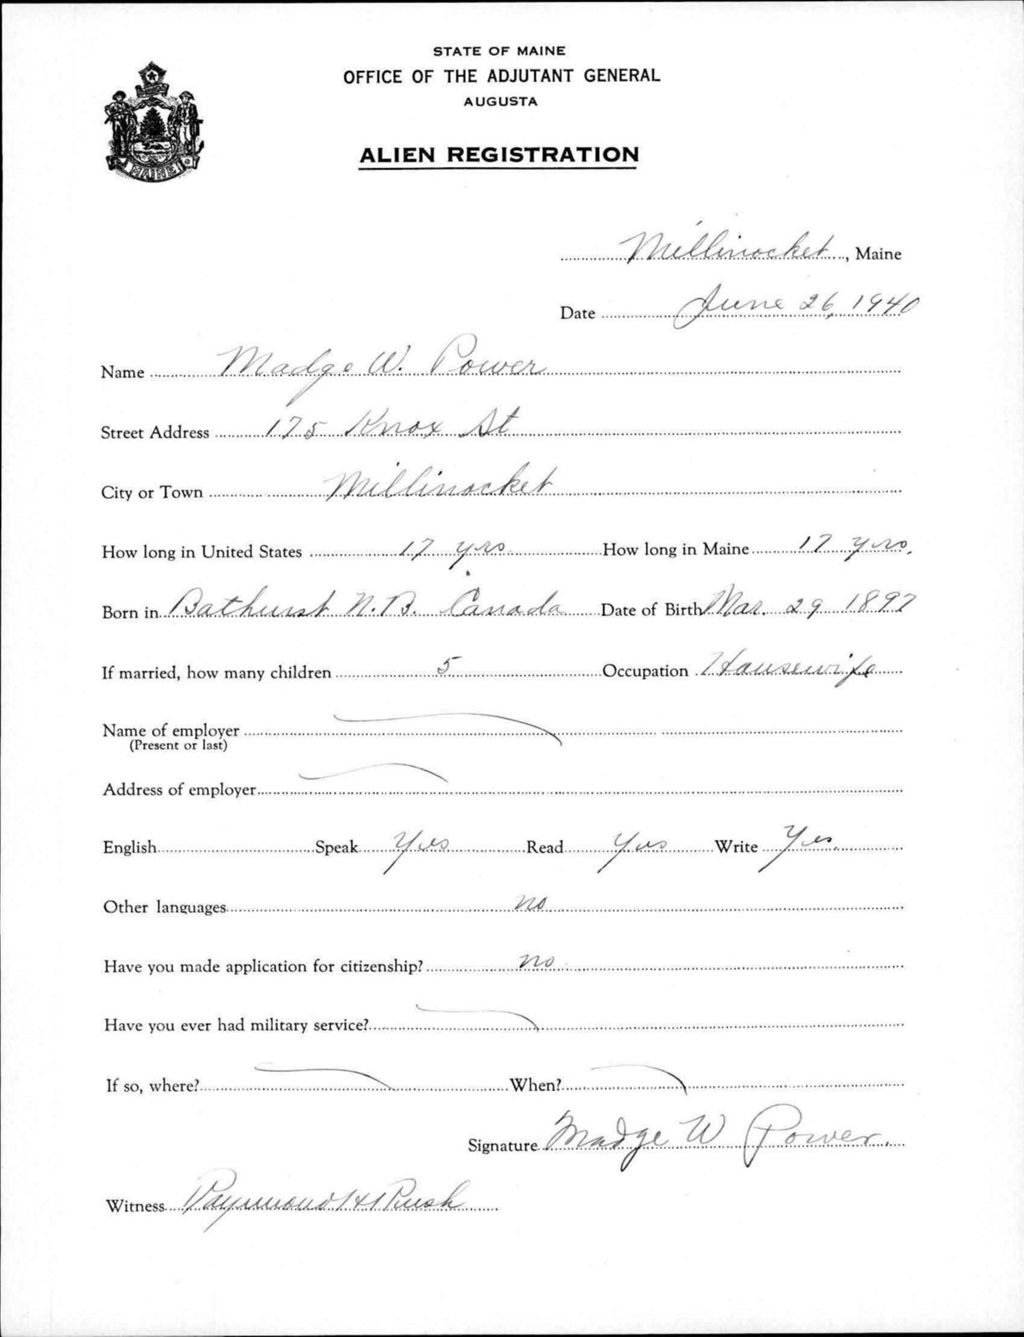 STATE OF MAINE
OFFICE OF THE ADJUTANT GENERAL
AUGUSTA
ALIEN REGISTRATION
MAINE
Millinocket, Maine
Date June 26, 1940
Name Madge W. Power
Street Address 175 Knox St
City or Town Millinocket
How long in United States 17 yrs How long in Maine 17 yrs.
Born in Bathurst N.B. Canada Date of Birth Mar. 29 1897
If married, how many children 5 Occupation Housewife
Name of employer
(Present or last)
Address of employer
English Speak Yes Read Yes Write Yes
Other languages no
Have you made application for citizenship? no
Have you ever had military service?
If so, where? When?
Signature Madge W Power.
Witness Raymond H Rush